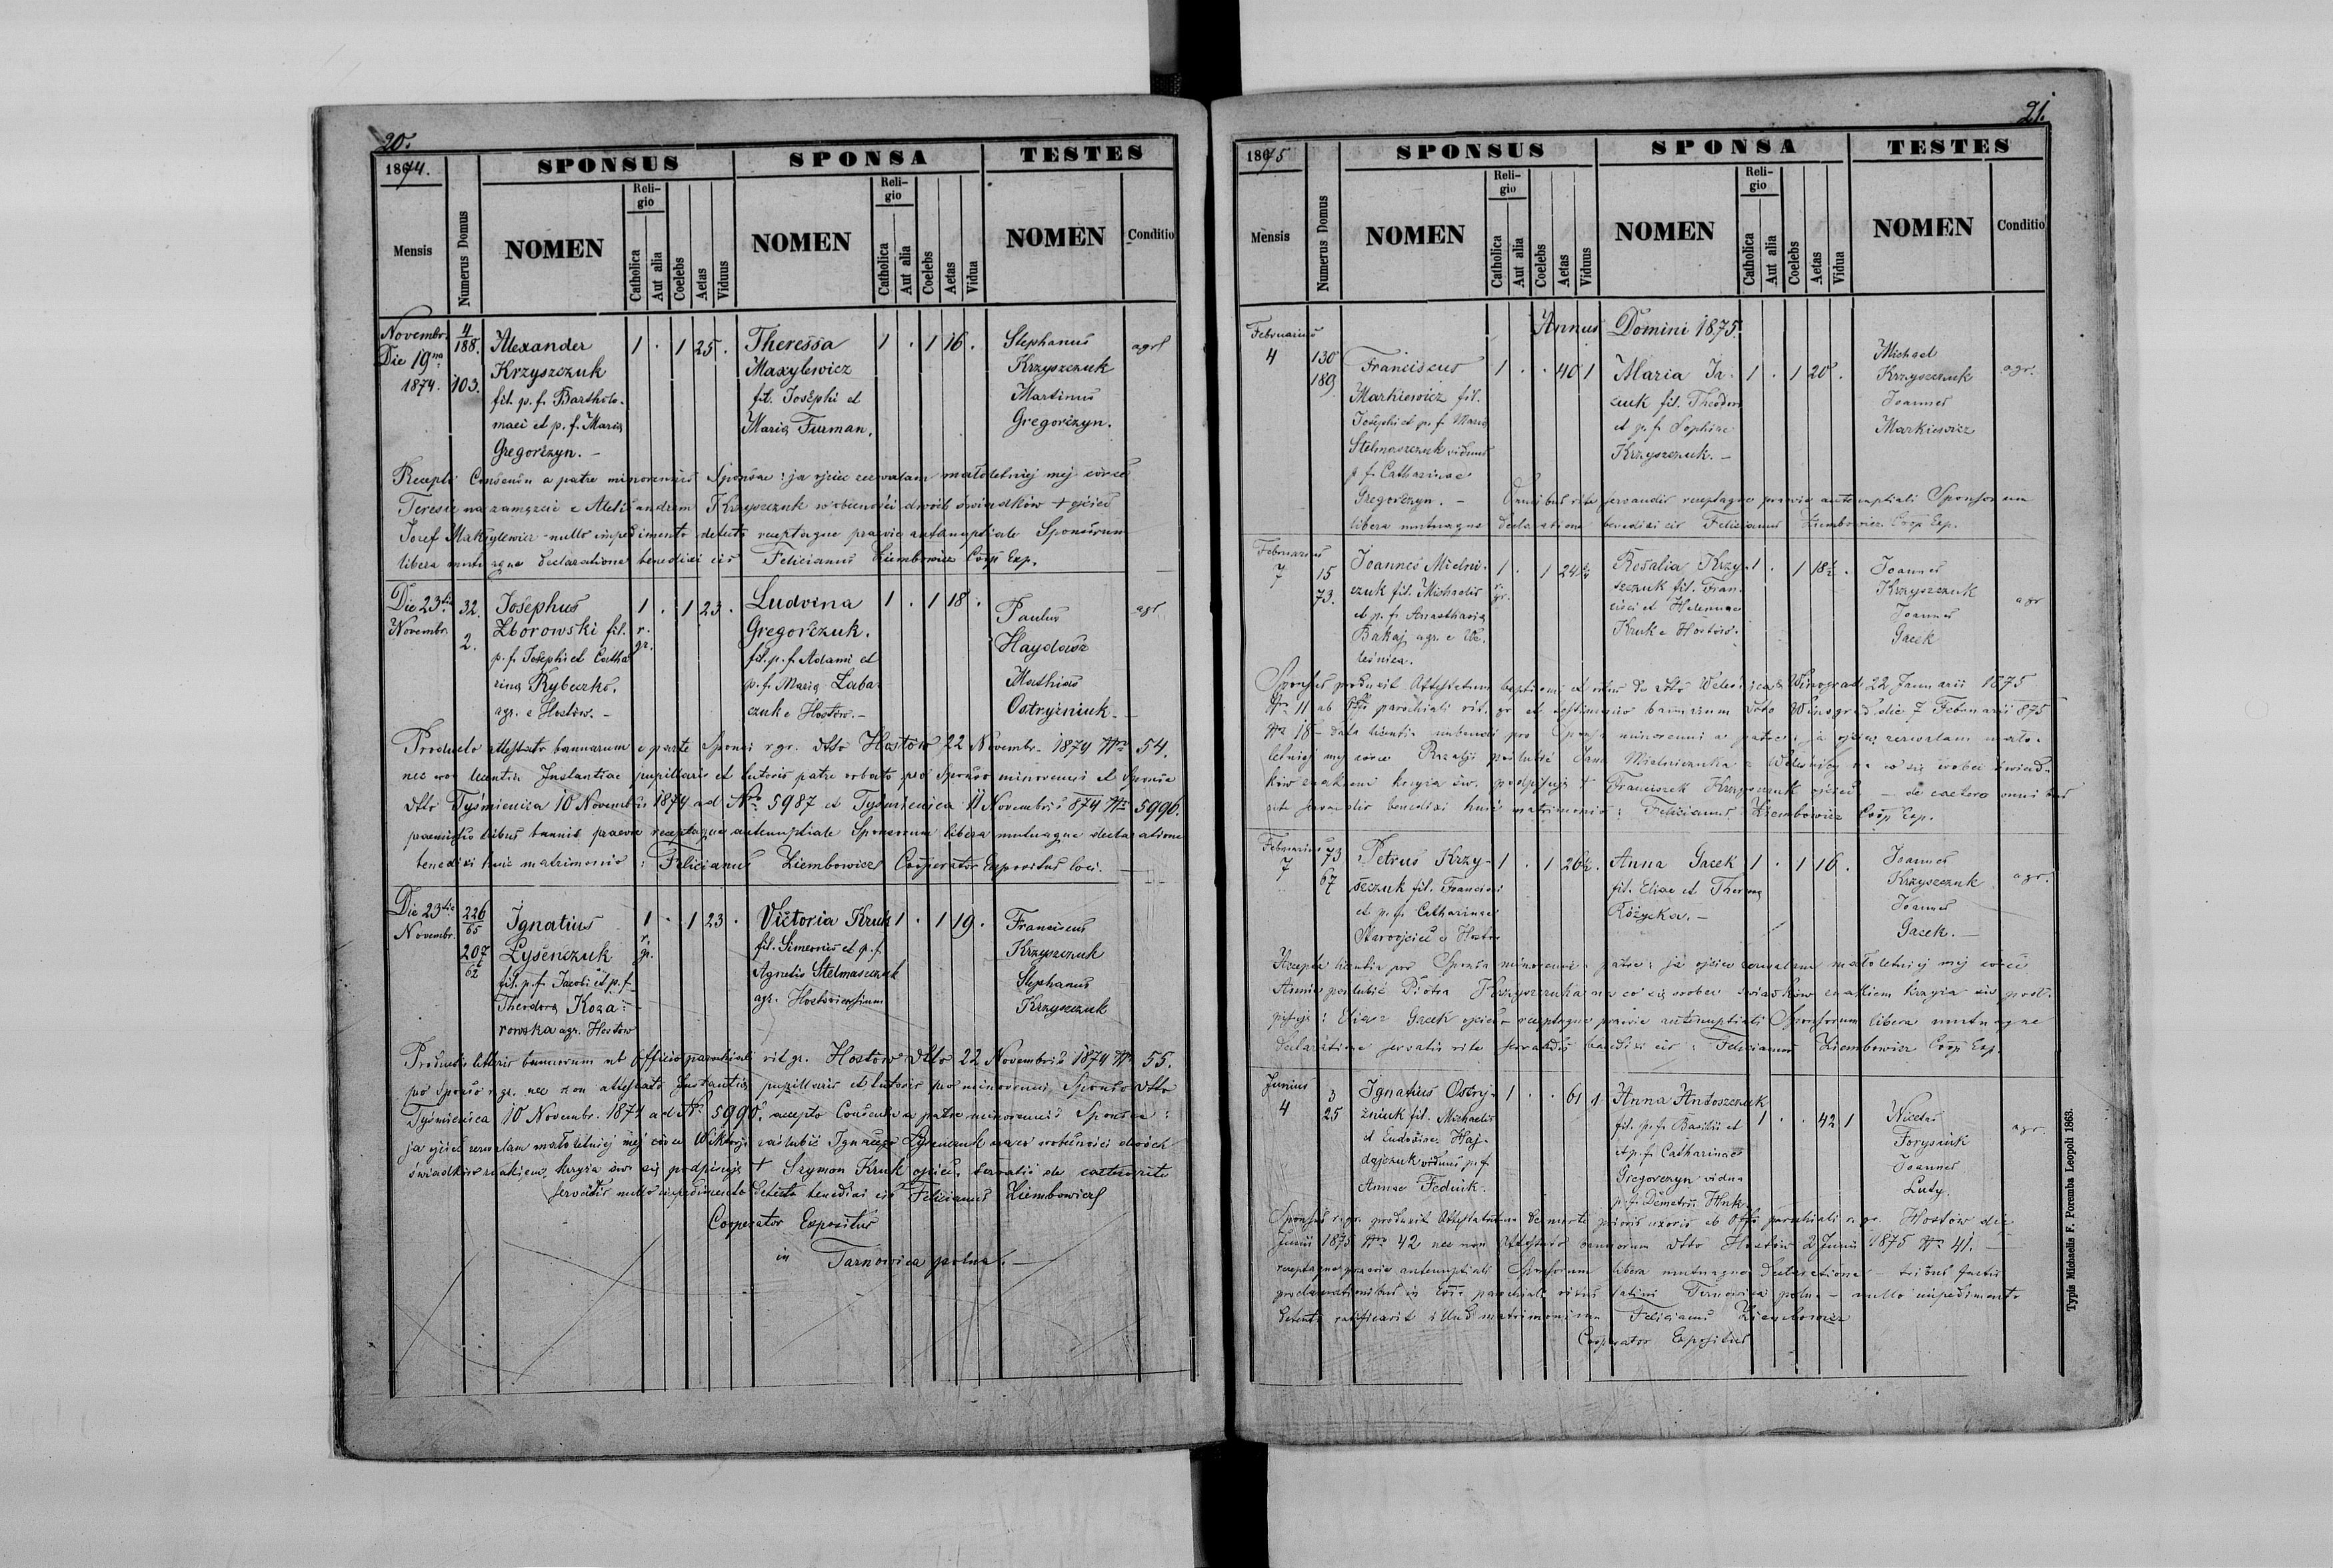 20.
1874.
SPONSUS
SPONSA
TESTES
Mensis
Numerus Domus
NOMEN
Religio
Catholica
Aut alia
Coelebs
Aetas
Viduus
NOMEN
Religio
Catholica
Aut alia
Coelebs
Aetas
Vidua
NOMEN
Conditio
Novembr. 4/188. Alexander 1 . 1 25 . Theressa 1 . 1 16 . Stephanus agr
Die 19na Krzyszczuk Maxylewicz Krzyszczuk
1874. 103. fil. p. f. Bartholo- fil. Josephi et Martinus
maei et p. f. Maria Maria Furman. Gregorczyn.
Gregorczyn. –
Recepto Consensu a patre minorennis Sponsae: ja ojciec zezwalam małoletniej mej córce
Teresie na zamęzcie z Aleksandrem Krzyszczuk w obecności dwóch świadków + ojciec
Josef Maksylewicz nullo impedimento detecto receptaque praevie antenuptiale Sponsorum
libera mutuaque declaratione benedixi eis Felicianus Ziembowicz Coop Exp.
Die 23tia 32. Josephus 1 . 1 23 . Ludvina 1 . 1 18 . Paulus agr
Novembr. 2. Zborowski fil. r. gr. Gregorczuk. Haydasz
p. f. Josephi et Catha fil. p. f. Adami et Mathias
rina Rybeczko. p. f. Maria Łaba- Ostryżniuk.
agr. e Hostów. – czuk e Hostów. –
Producto attestato bannorum e parte Sponsi r. gr. dtto Hostów 22 Novembr. 1874 Nro 54.
nec non licentia Instantiae pupillaris et tutoris patre orbato pro Sponso minorenni et Sponsa
dtto Tyśmienica 10 Novembris 1874 ad Nro 5987 et Tyśmienica 11 Novembris 874 Nro 5996.
praemissis tribus bannis praevie receptaque antenuptiale Sponsorum libera mutuaque declaratione
benedixi huic matrimonio : Felicianus Ziembowicz Cooperator Expositus loci. –
Die 23tia 226/65 Ignatius 1 . 1 23 . Victoria Kruk 1 . 1 19 . Franciscus
Novembr. 207/62 Łyseńczuk r. gr. fil. Simeonis et p. f. Krzyszczuk
fil. p. f. Jacobi et p. f. Agnetis Stelmaszczuk Stephanus
Theodora Koza- agr. Hostoviensium Krzyszczuk
rowska agr. Hostów
Productis litteris bannorum ab Officio parochiali rit. gr. Hostów dtto 22 Novembris 1874 Nro 55.
pro Sponso r. gr. nec non attestato Instantia pupillaris et tutoris pro minorenni Sponso dtto
Tyśmienica 10 Novembr. 1874 ad Nr. 5990. accepto Consensu a patre minorennis Sponsae :
ja ojciec zezwalam małoletniej mej córce Wiktorji zaślubić Ignacego Łyseńczuk na co w obecności dwóch
świadków znakiem krzyża św. się podpisuję + Szymon Kruk ojciec. Servatis de caetero rite
servandis nullo impedimento detecto benedixi eis Felicianus Ziembowicz
Cooperator Expositus
in Tarnowica polna. –
21.
1875
SPONSUS
SPONSA
TESTES
Mensis
Numerus Domus
NOMEN
Religio
Catholica
Aut alia
Coelebs
Aetas
Viduus
NOMEN
Religio
Catholica
Aut alia
Coelebs
Aetas
Vidua
NOMEN
Conditio
Februarius Annus Domini 1875.
4 130 Franciscus 1 . . 40 1 Maria 1 . 1 20 . Michael agr.
189 Markiewicz fil. czuk fil. Theodori Krzyszczuk
Josephi et p. f. Maria et p. f. Sophiae Joannes
Stelmaszczuk viduus Krzyszczuk. – Markiewicz
p. f. Catharinae
Gregorczyn. – Omnibus rite servandis receptaque praevie antenuptiali Sponsorum
libera mutuaque declaratione benedixi eis Felicianus Ziembowicz Coop Exp.
Februarius Joannes Mielni- 1 . 1 24 Rosalia Krzy- 1 . 1 18½ . Joannes
7 15 czuk fil. Michaelis r. gr. szczuk fil. Fran- Krzyszczuk agr
73. et p. f. Anasthasia cisci et Helennae Joannes
Bakaj agr. e We- Kruk e Hostów. Gacek
leśnica.
Sponsus produxit Attestatum baptismi et Winograd 22 Januarii 1875
Nr. 11 ab Offo parochiali rit. gr. et testimonio bannorum dtto Winograd die 7 Februarii 875
Nro 18 – data licentia nubendi pro Sponsa minorenni a patre: ja ojciec zezwalam mało-
letniej mej córce Rozalji poślubić Jana Mielniczuka z Weleśnicy na co się wobec świad-
ków znakiem krzyża św. podpisuję + Franciszek Krzyszczuk ojciec – de caetero omnibus
rite servandis benedixi huic matrimonio : Felicianus Ziembowicz Coop Exp.
Februarius 73 Petrus Krzy- 1 . 1 26½ . Anna Gacek 1 . 1 16 . Joannes
7 67 szczuk fil. Francisci fil. Eliae et Theresa Krzyszczuk agr.
et p. f. Catharinae Różycka. – Joannes
Staroojciec e Hostów Gacek. –
Accepta licentia pro Sponsa minorenni a patre: ja ojciec zezwalam małoletniej mej córce
Annie poślubić Piotra Krzyszczuka na co się wobec świadków znakiem krzyża św. pod-
pisuję : Eliasz Gacek ojciec – receptaque praevie antenuptiali Sponsorum libera mutuaque
declaratione servatis rite servandis benedixi eis : Felicianus Ziembowicz Coop Exp.
Junius 3 Ignatius Ostry- 1 . . 61 1 Anna Antoszczuk
4 25 żniuk fil. Michaelis fil. p. f. Basilii et 1 . . 42 1 Nicetas
et Eudoxiae Haj- et p. f. Catharinae Forysiuk agr.
dajczuk viduus p. f. Gregorczyn vidua Joannes
Annae Fediuk. p. f. Demetrii Hnk. Luty.
Sponsus r. gr. produxit Attestatum de morte prioris uxoris ab Offo parochiali r. gr. Hostów die
Junii 1875 Nro 42 nec non Attestato bannorum dtto Hostów 2 Junii 1875 Nr 41. –
receptaque praevie antenuptiali Sponsorum libera mutuaque declaratione tribus factis
proclamationibus in parochiali ritus latini Tarnowica polna – nullo impedimento
detecto ratificavit illud matrimonium Felicianus Ziembowicz
Cooperator Expositus
Typis Michaelis F. Poremba Leopoli 1863.